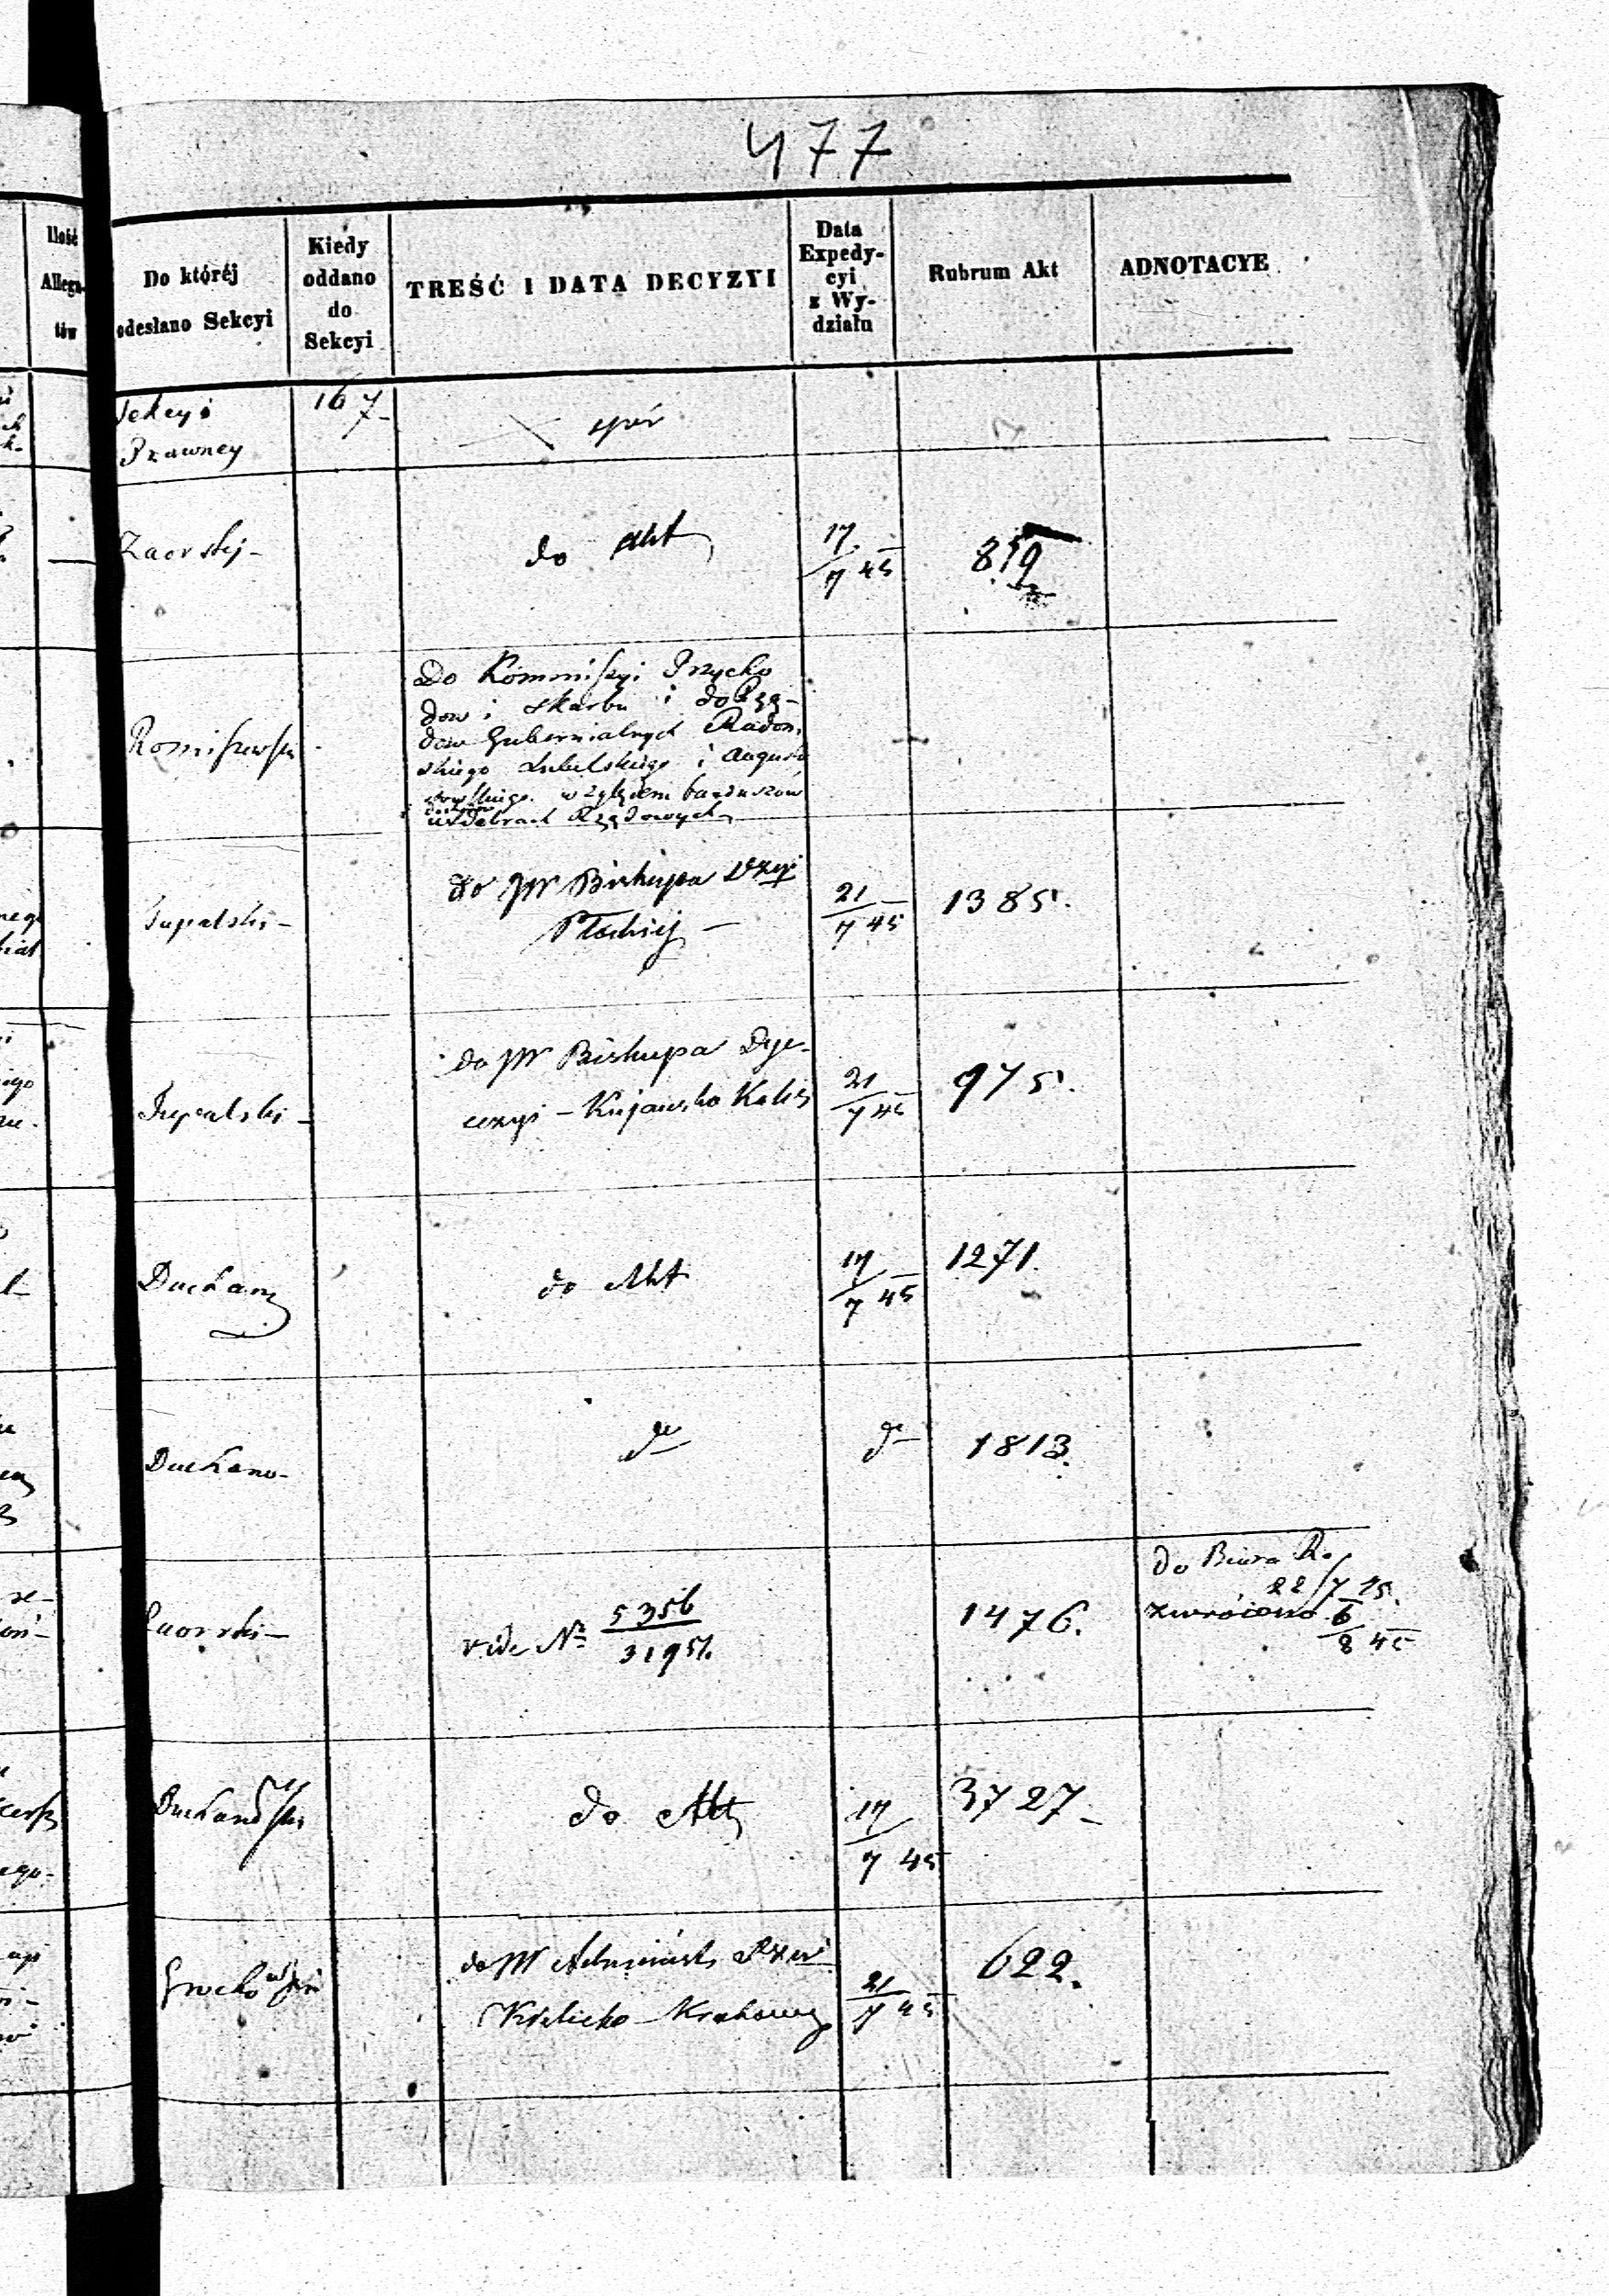 477
Ilość
Allega-
tów
Do któréj
odesłano Sekcyi
Kiedy
oddano
do
Sekcyi
TREŚĆ I DATA DECYZYI
Data
Expedy-
cyi
z Wy-
działu
Rubrum Akt
ADNOTACYE
Sekcyi
Prawney
16 7
Zaorskij
do Akt
17/7 45
859
Romiszewski
Do Kommissyi Przycho
dow i Skarbu i do Rzą-
dow Gubernialnych Radom
skiego Lubelskiego i Augusto
wskiego względem
w dobrach Rządowych
Tupalski
do JW Biskupa
Płockiej
21/7 45
1385.
Tupalski
do JW Biskupa Dye-
cezyi Kujawsko Kalis
21/7 45
975.
do Akt
17/7 45
1271.
do
do
1813.
Zaorski
vide No 5356/31951.
1476.
do Biura R.
22/7 45.
zwrócono 6/8 45
do Akt
17/7 45
3727
Grochowski
do JW Administ. Dyecezyi
Kielecko Krakows
21/7 45
622.